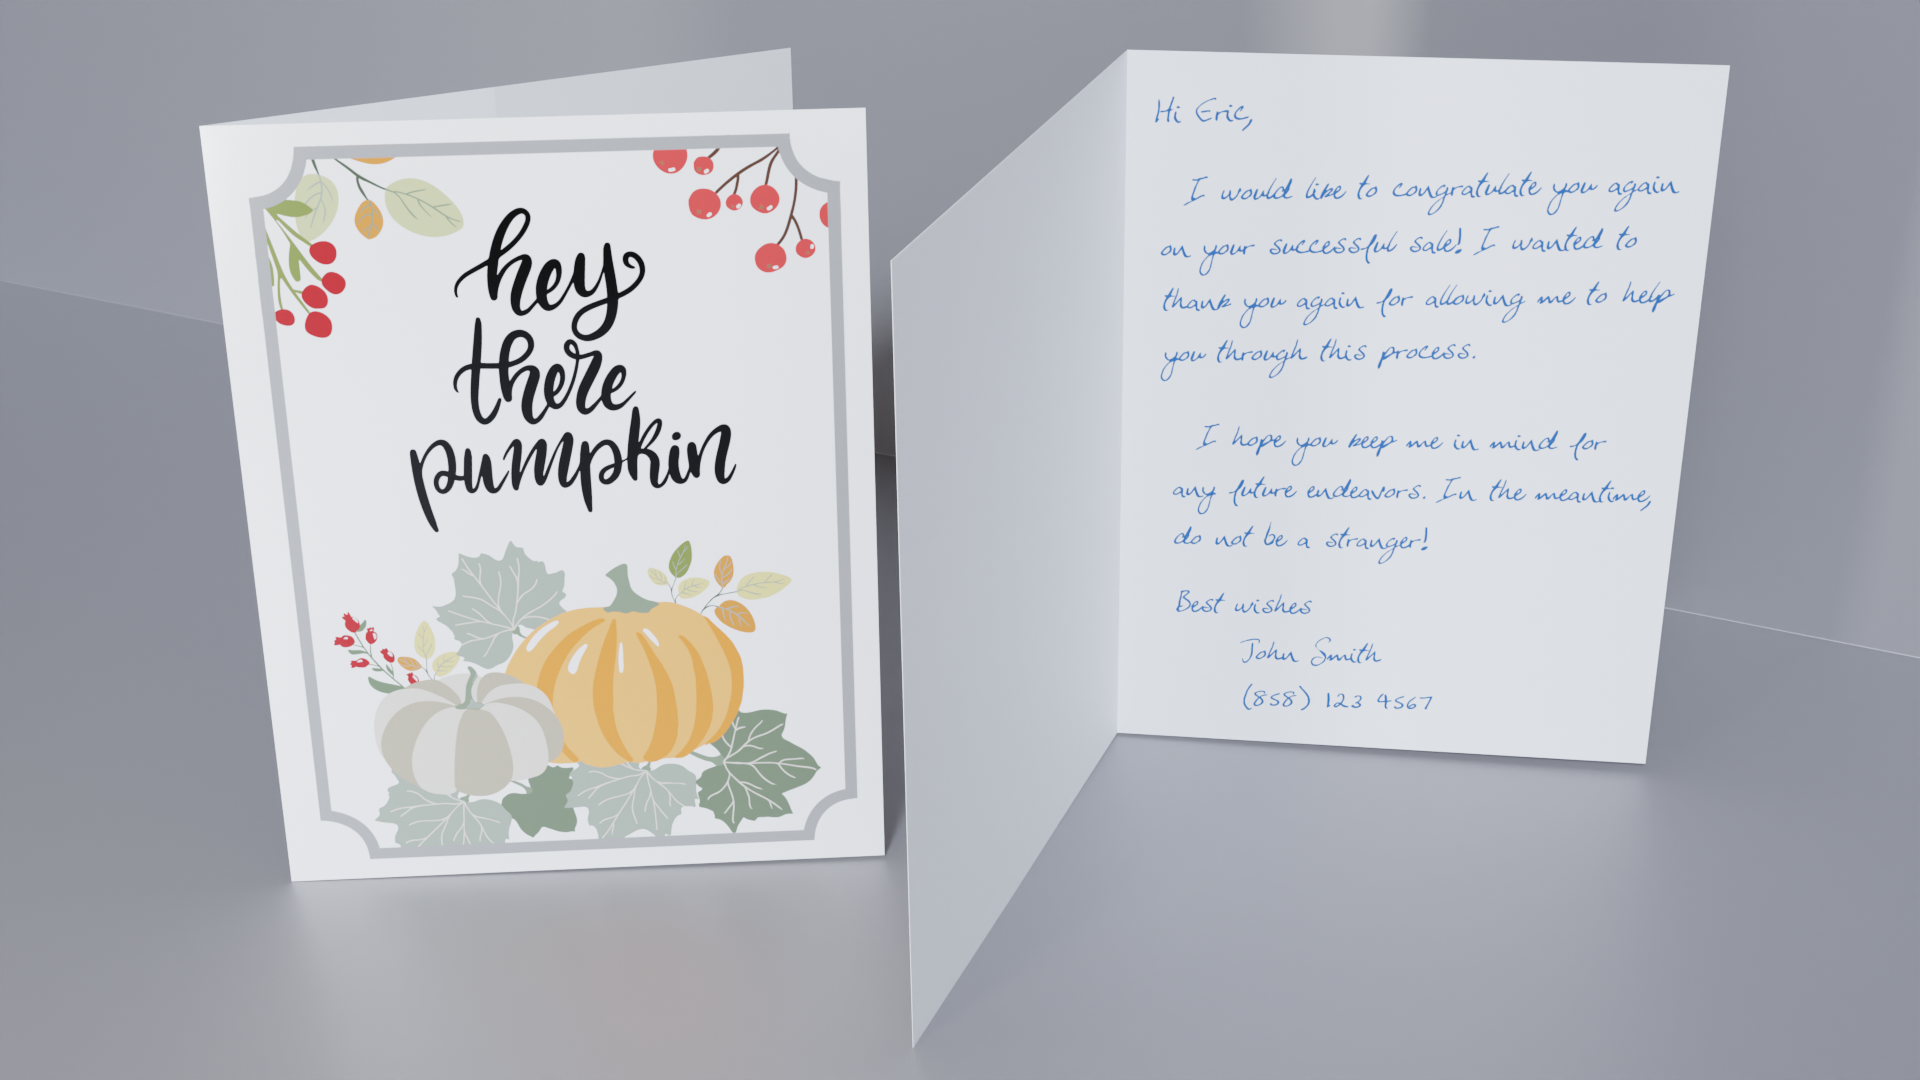 hey
there
pumpkin
Hi Eric,
I would like to congratulate you again
on your successful sale! I wanted to
thank you again for allowing me to help
you through this process.
I hope you keep me in mind for
any future endeavors. In the meantime,
do not be a stranger!
Best wishes
John Smith
(858) 123 4567